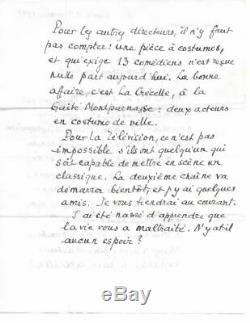 Pour les autres directeurs, il n'y faut
pas compter : une pièce à costumes,
et qui exige 13 comédiens n'est reçue
nulle part aujourd'hui. La bonne
affaire, c'est La Crécelle, à la
Gaîté Montparnasse : deux acteurs
en costume de ville.
Pour la Télévision, ce n'est pas
impossible s'ils ont quelqu'un qui
soit capable de mettre en scène un
classique. La deuxième chaîne va
démarrer bientôt, et j'y ai quelques
amis. Je vous tiendrai au courant.
J'ai été navré d'apprendre que
la vie vous a maltraité. N'y a-t-il
aucun espoir ?
ebay